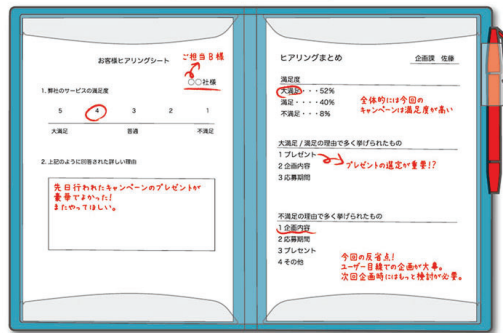 お客様ヒアリングシート
ご担当B様
○○社様
1. 弊社のサービスの満足度
5 4 3 2 1
大満足 普通 不満足
2. 上記のように回答された詳しい理由
先日行われたキャンペーンのプレゼントが
豪華でよかった!
またやってほしい。
ヒアリングまとめ
企画課 佐藤
満足度
大満足・・・52%
満足・・・・40%
不満足・・・8%
全体的には今回の
キャンペーンは満足度が高い
大満足/満足の理由で多く挙げられたもの
1 プレゼント
2 企画内容
3 応募期間
プレゼントの選定が重要!?
不満足の理由で多く挙げられたもの
1 企画内容
2 応募期間
3 プレゼント
4 その他
今回の反省点!
ユーザー目線での企画が大事。
次回企画時にはもっと検討が必要。